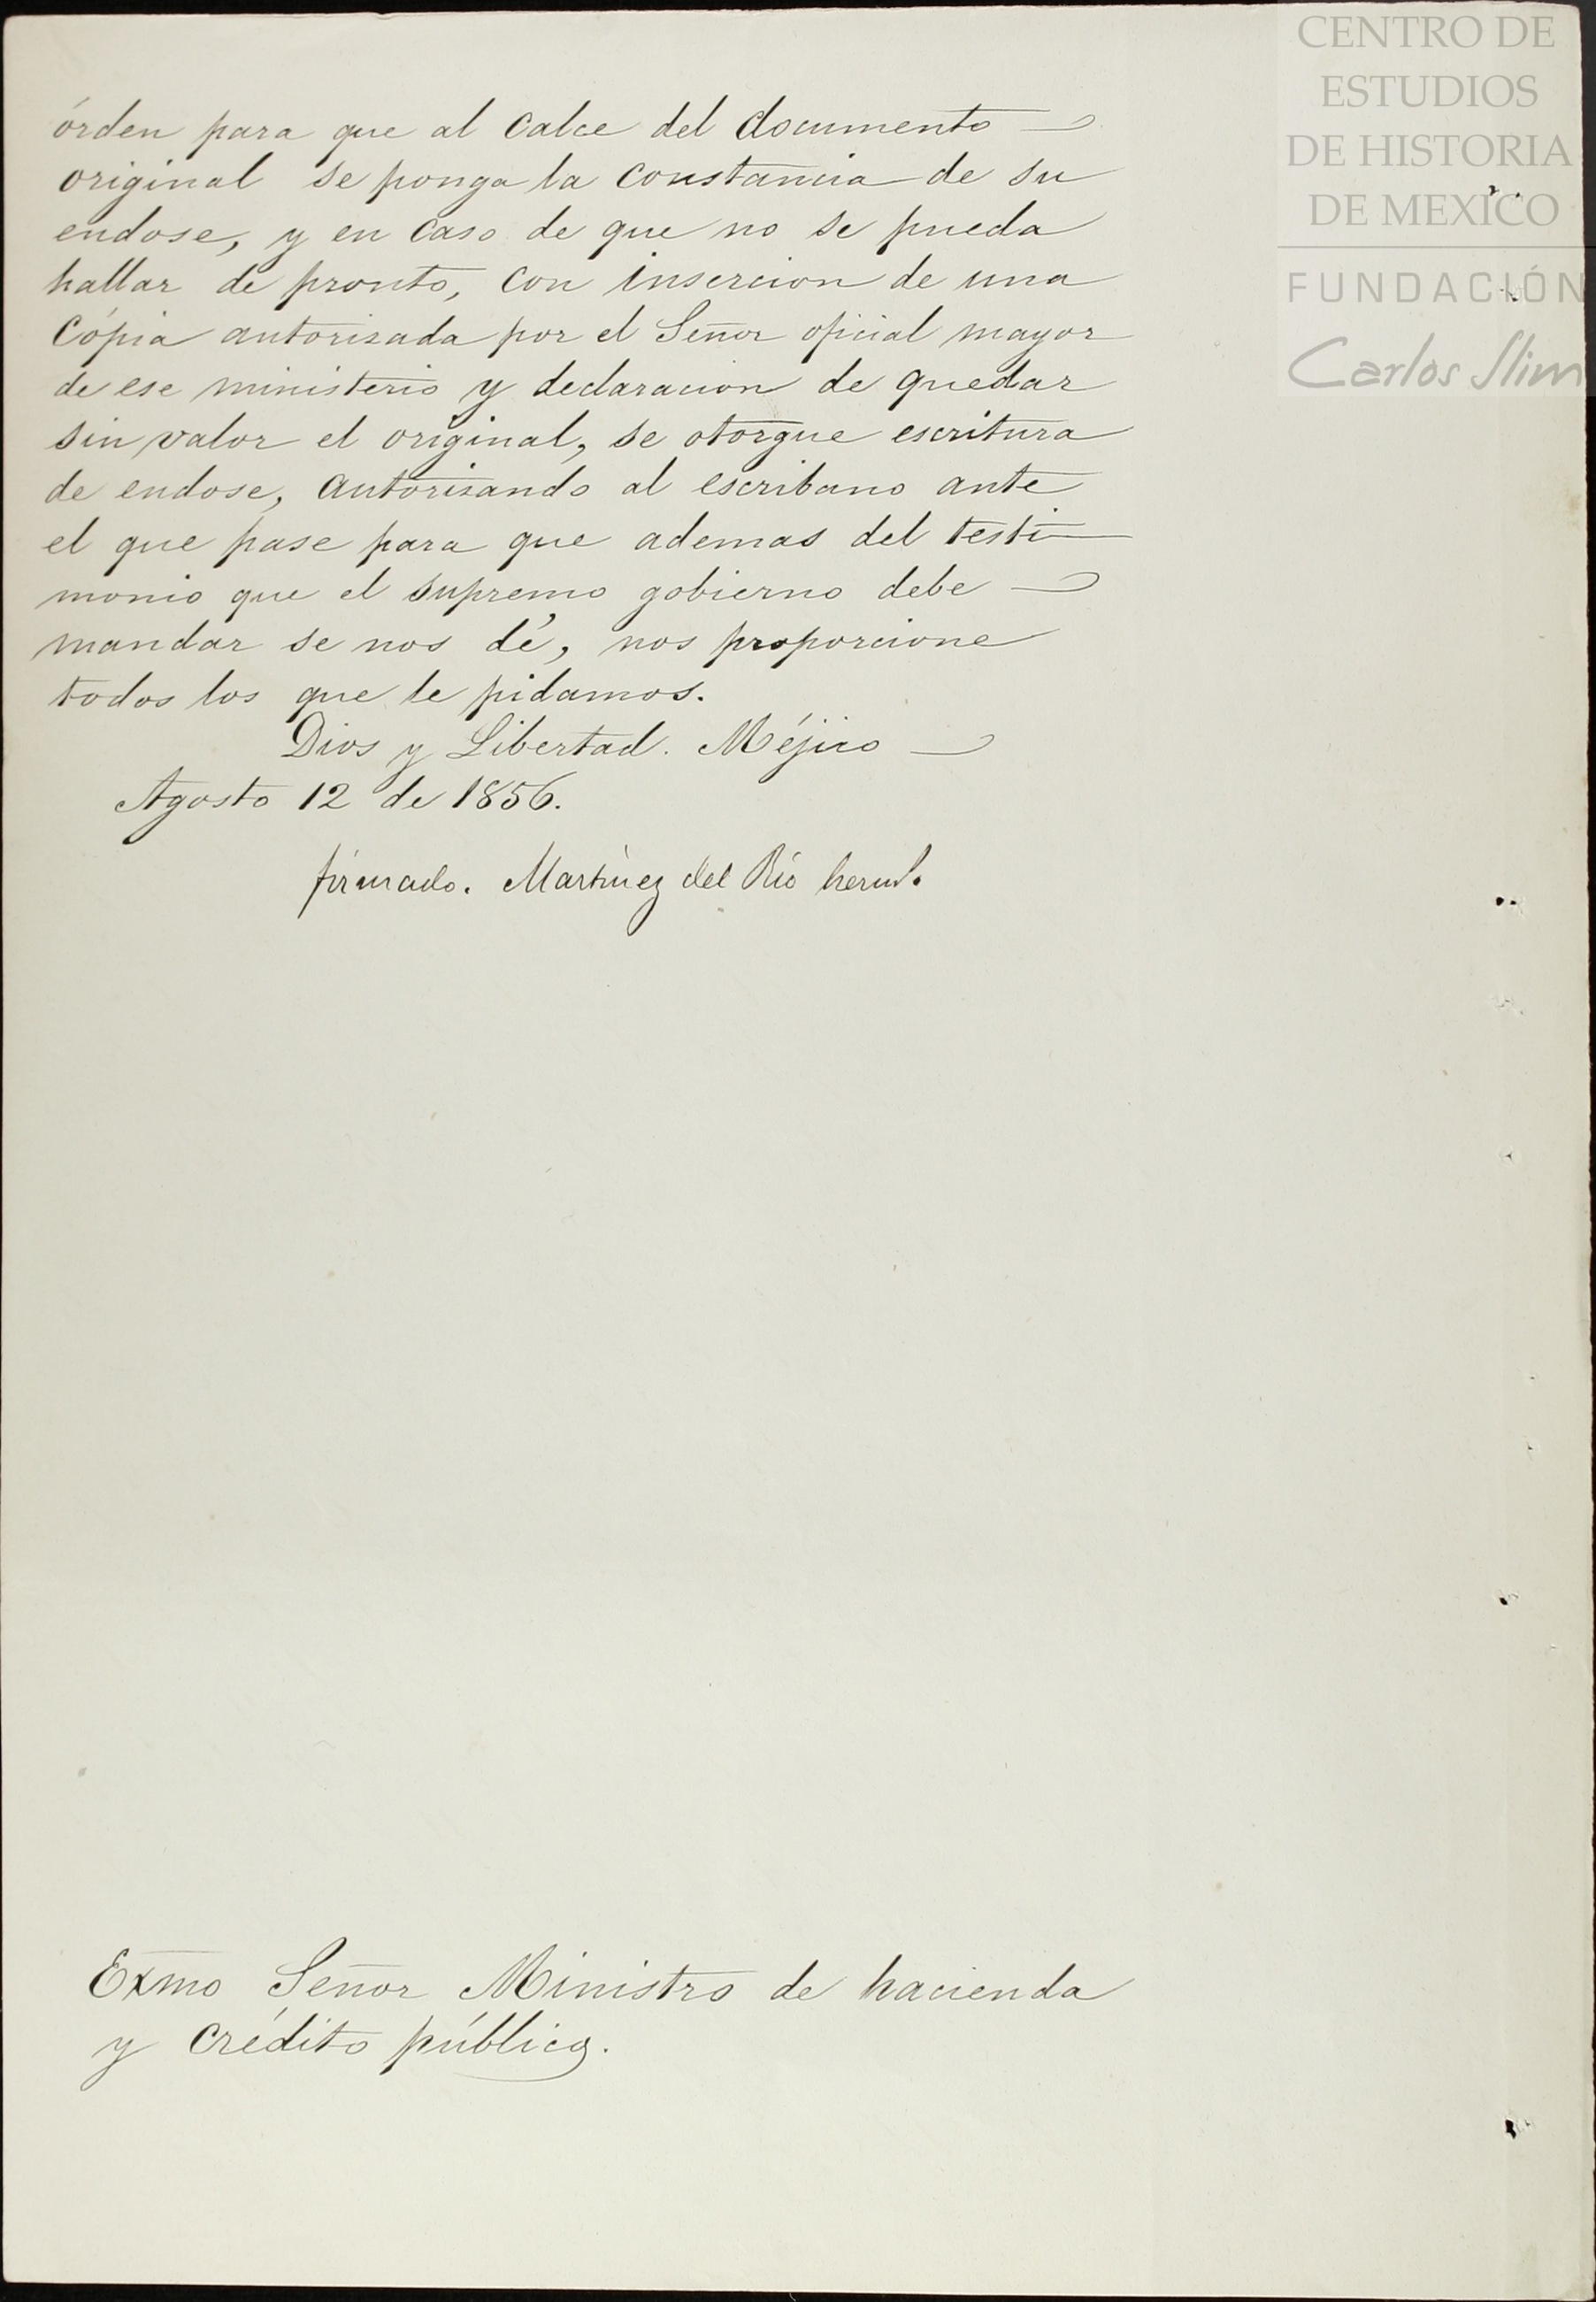 órden para que al calce del documento
original se ponga la constancia de su
endose, y en caso de que no se pueda
hallar de pronto, con insercion de una
cópia autorisada por el Señor oficial mayor
de ese ministerio y declaracion de quedar
sin valor el original, se otorgue escritura
de endose, autorisando al escribano ante
el que pase para que ademas del testi
monio que el supremo gobierno debe
mandar se nos dé, nos proporcione
todos los que le pidamos.
Dios y Libertad. Méjico
Agosto 12 de 1856.
firmado. Martinez del Rio herms.
Exmo Señor Ministro de hacienda
y crédito público.
CENTRO DE
ESTUDIOS
DE HISTORIA
DE MEXICO
FUNDACIÓN
Carlos Slim